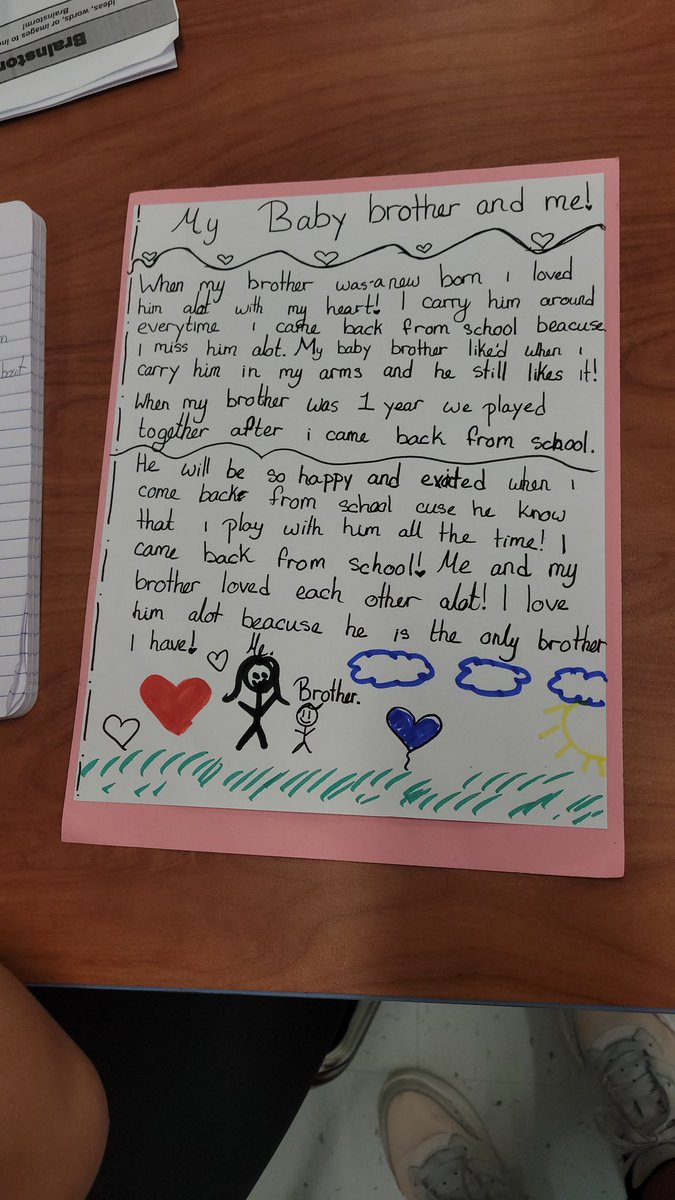 Brainstor
Ideas, words, or images to in
Brainstorm!
My Baby brother and me!
When my brother was a new born i loved
him alot with my heart! I carry him around
everytime i came back from school beacuse
I miss him alot. My baby brother like'd when i
carry him in my arms and he still likes it!
When my brother was 1 year we played
together after i came back from school.
He will be so happy and exited when i
come back from school cuse he know
that i play with him all the time! I
came back from school! Me and my
brother loved each other alot! I love
him alot beacuse he is the only brother
I have!
Me.
Brother.